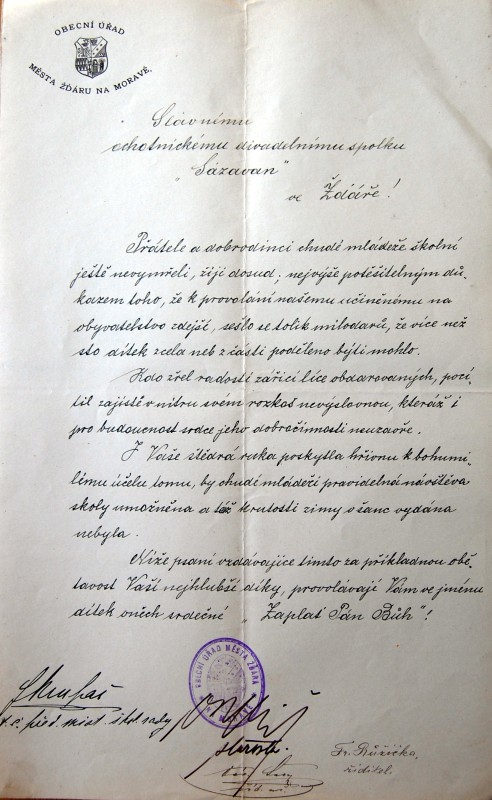 OBECNÍ ÚŘAD
MĚSTA ŽĎÁRU NA MORAVĚ.
Slavnému
ochotnickému divadelnímu spolku
„Sázavan"
ve Žďáře!
Přátele a dobrodinci chudé mládeže školní
ještě nevymřeli, žijí dosud; nejvýše potěšitelným dů-
kazem toho, že k provolání našemu učiněnému na
obyvatelstvo zdejší, sešlo se tolik milodarů, že více než
sto dítek zcela neb z části poděleno býti mohlo.
Kdo zřel radostí zářící líce obdarovaných, pocí-
til zajisté v nitru svém rozkoš nevýslovnou, kteráž i
pro budoucnost srdce jeho dobročinnosti neuzavře.
I Vaše štědrá ruka poskytla hřivnu k bohumi-
lému účelu tomu, by chudé mládeži pravidelná návštěva
školy umožněna a též krutosti zimy v šanc vydána
nebyla.
Níže psaní vzdávajíce tímto za příkladnou obě-
tavost Vaši nejhlubší díky, provolávají Vám ve jménu
dítek oněch srdečné „Zaplať Pán Bůh"!
OBECNÍ ÚŘAD MĚSTA ŽĎÁRA
NA MORAVĚ
předs. míst. škol. rady
starosta.
Fr. Růžička,
řídící.